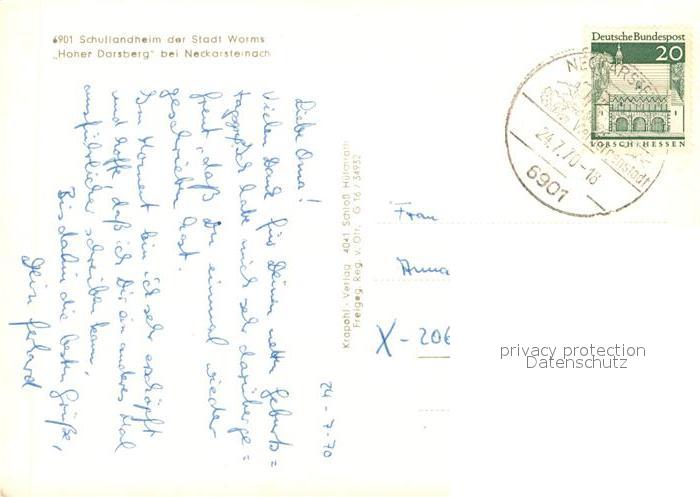 6901 Schullandheim der Stadt Worms
„Hoher Darsberg" bei Neckarsteinach
Deutsche Bundespost
20
LORSCH/HESSEN
NECKARSTE
24.7.70-18
6901
24-7-70
Liebe Oma!
Vielen Dank für Deinen netten Geburts=
tagsgruß habe mich sehr darüber ge=
freut, daß Du einmal wieder
geschrieben hast.
Im Moment bin ich sehr erschöpft
und hoffe, daß ich Dir ein anderes Mal
ausführlicher schreiben kann,
Bis dahin die besten Grüße,
Dein Gerhard
Krapohl-Verlag 4041 Schloß Hülchrath
Freigeg. Reg. v. Obr. G 16 / 34932
Frau
Anna
X-206
privacy protection
Datenschutz